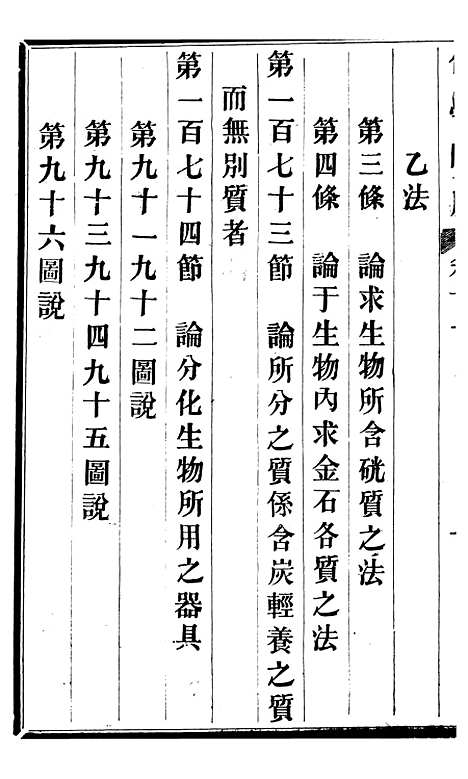 乙法
第三條　論求生物所含硄質之法
第四條　論于生物內求金石各質之法
第一百七十三節　論所分之質係含炭輕養之質
而無別質者
第一百七十四節　論分化生物所用之器具
第九十一九十二圖說
第九十三九十四九十五圖說
第九十六圖說